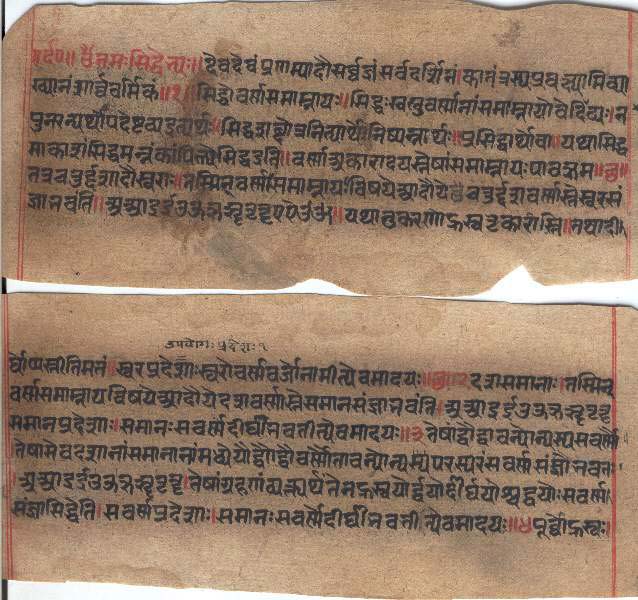 देवदेवं प्रणम्यादौ सर्वज्ञं सर्वदर्शिनं। कातंत्रस्य प्रवक्ष्यामि व्या
ख्यानं शार्ववर्मिकं॥१॥ सिद्धो वर्णसमाम्नायः॥ सिद्धः खलु वर्णानां समाम्नायो वेदितव्यः। न
पुनरन्यथोपदेष्टव्य इत्यर्थः॥ सिद्धशब्दो नित्यार्थो निष्पन्नार्थः प्रसिद्धार्थो वा॥ यथा सिद्ध
माकाशं सिद्धमन्नं कांपिल्यः सिद्ध इति॥ वर्णा अकारादयस्तेषां समाम्नायः पाठक्रमः॥
तत्र चतुर्द्दशादौ स्वराः॥ तस्मिन् वर्णसमाम्नायविषये आदौ ये चतुर्द्दश वर्णास्ते स्वरसं
ज्ञा भवंति। अ आ इ ई उ ऊ ऋ ॠ ऌ ॡ ए ऐ ओ औ॥ यथानुकरणे ह्रस्व ऌकारोस्ति॥ तथा दी।
र्घोप्यस्तीति मतं। स्वरप्रदेशाः स्वरोवर्णवर्जो नामीत्येवमादयः॥ दश समानाः। तस्मिन्
वर्णसमाम्नायविषये आदौ ये दश वर्णास्ते समानसंज्ञा भवंति। अ आ इ ई उ ऊ ऋ ॠ ऌ ॡ
समानप्रदेशाः। समानः सवर्णे दीर्घीभवतीत्येवमादयः॥३ तेषां द्वौ द्वावन्योन्यस्य सवर्णौ
तेषामेव दशानां समानानां मध्ये यौ द्वौ द्वौ वर्णौ तावन्योन्यस्य परस्परं सवर्णसंज्ञौ भवतः
अ आ इ ई उ ऊ ऋ ॠ ऌ ॡ। तेषां ग्रहणं व्यक्त्यर्थं तेन ह्रस्वयोर्द्वयोर्दीर्घयोश्च द्वयोः सवर्ण।
संज्ञा सिद्धेति। सवर्णप्रदेशाः। समानः सवर्णे दीर्घीभवतीत्येवमादयः॥४ पूर्वो ह्रस्वः।